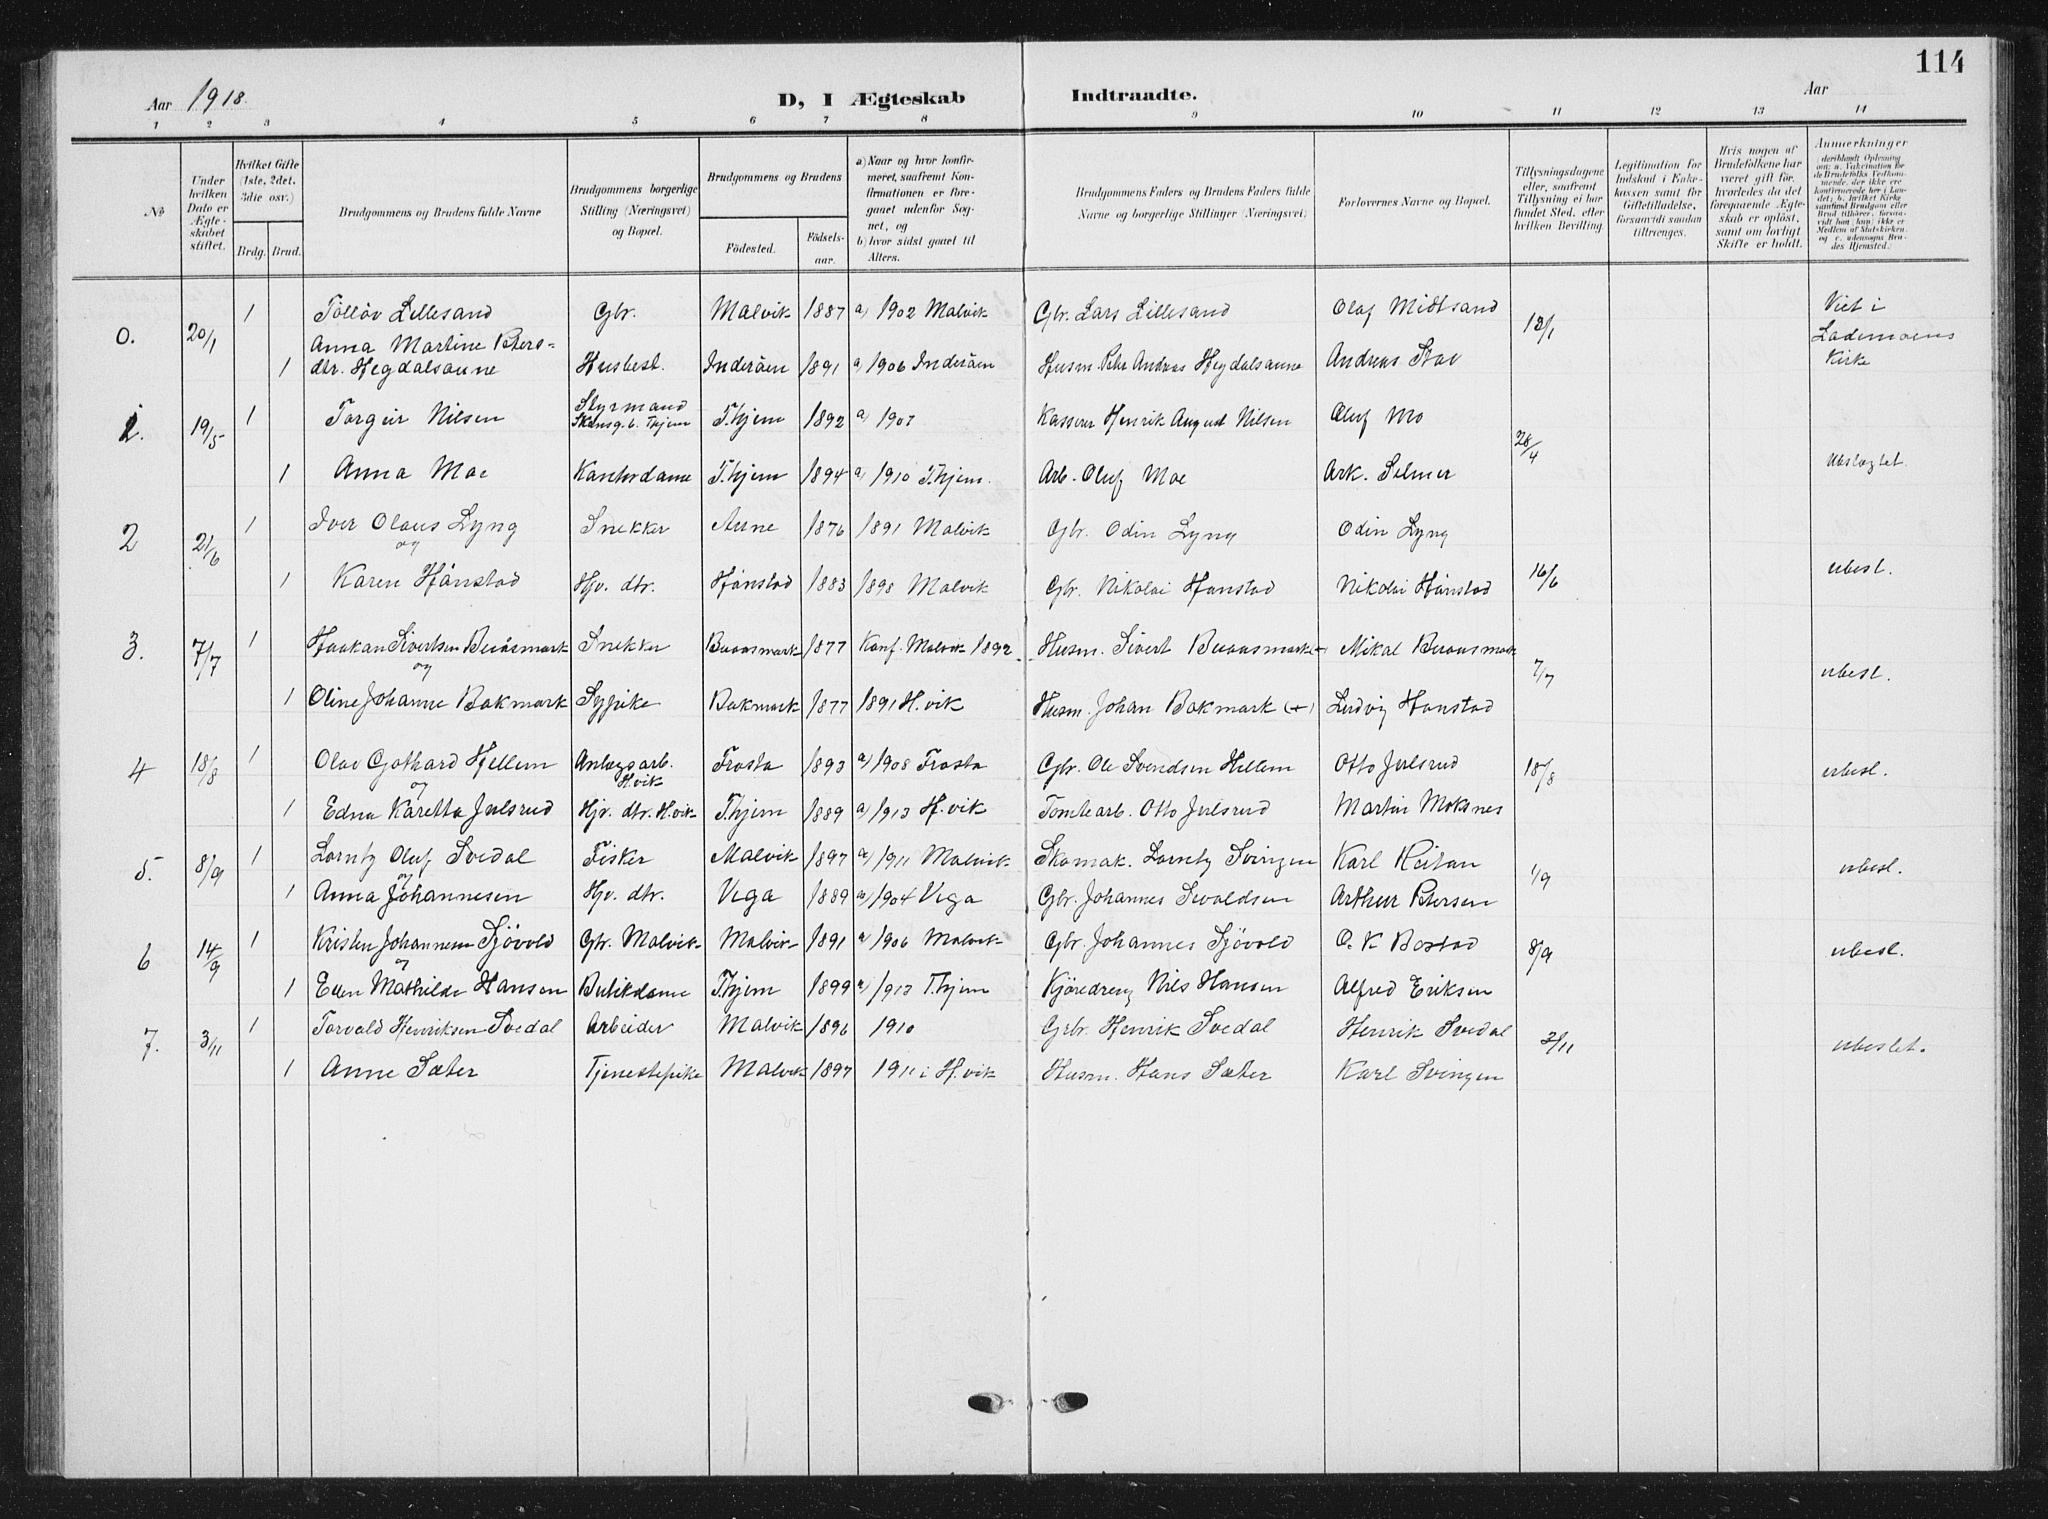 114
Aar 1918.
D, I Ægteskab Indtraadte.
Aar
1 2 3 4 5 6 7 8 9 10 11 12 13 14
No
Under hvilken Dato er Ægteskabet stiftet.
Hvilket Gifte (1ste, 2det, 3die osv.)
Brdg. Brud.
Brudgommens og Brudens fulde Navne
Brudgommens borgerlige Stilling (Næringsvei) og Bopæl.
Brudgommens og Brudens
Fødested. Fødselsaar.
a) Naar og hvor konfirmeret, saafremt Konfirmationen er foregaaet udenfor Sognet, og
b) hvor sidst gaaet til Alters.
Brudgommens Faders og Brudens Faders fulde Navne og borgerlige Stillinger (Næringsvei)
Forlovernes Navne og Bopæl.
Tillysningsdagene eller, saafremt Tillysning ei har fundet Sted, efter hvilken Bevilling.
Legitimation for Indskud i Enkekassen samt for Giftetilladelse, forsaavidt saadan tiltrænges.
Hvis nogen af Brudefolkene har været gift før, hvorledes da det foregaaende Ægteskab er opløst, samt om lovligt Skifte er holdt.
Anmerkninger
0. 20/1 1 Tollöv Lillesand Gbr. Malvik 1887 a) 1902 Malvik Gbr. Lars Lillesand Olaf Midtsand 13/1 Viet i Lademoens Kirke
1 Anna Martine Petersdtr. Hegdalsaune Husbest. Inderöen 1891 a) 1906 Inderöen Husm. Peter Andreas Hegdalsaune Andreas Stav
1. 19/5 1 Torgeir Nilsen Styrmand Skansg. 6. Thjem T.hjem 1892 a) 1907 Kasserer Henrik August Nilsen Oluf Mo 28/4
1 Anna Moe Kontordame T.hjem 1894 a) 1910 T.hjem. Arb. Oluf Moe Ark. Selmer Ubslægtet.
2 21/6 1 Iver Olaus Lyng Snekker Aune 1876 1891 Malvik Gbr. Odin Lyng Odin Lyng
og
1 Karen Hånstad Hjv. dtr. Hånstad 1883 1898 Malvik Gbr. Nikolai Hanstad Nikolai Hånstad 16/6 ubesl.
3. 7/7 1 Haakan Sivertsen Buåsmark Snekker Buaasmark 1877 Konf. Malvik 1892 Husm. Sivert Buaasmark Mikal Buaasmark 7/7 ubesl.
og
1 Oline Johanne Bakmark Sypike Bakmark 1877 1891 H.vik Husm. Johan Bakmark (+) Ludvig Hanstad
4 18/8 1 Olav Gothard Hjellem Anlægsarb. H.vik Frosta 1893 a) 1908 Frosta Gbr. Ole Svendsen Hellem Otto Julsrud 18/8 ubesl.
og
1 Edna Karetta Julsrud Hjv. dtr. H.vik T.hjem 1889 a) 1913 H.vik Tomtearb. Otto Julsrud Martin Moksnes
5. 8/9 1 Lorntz Oluf Svedal Fisker Malvik 1897 a) 1911 Malvik Skomak. Lorntz Svingen Karl Reitan 1/9 ubesl.
og
1 Anna Johannesen Hjv. dtr. Vega 1889 a) 1904 Vega Gbr. Johannes Sivaldsen Arthur Petersen
6 14/9 1 Kristen Johannesen Sjövold Gbr. Malvik Malvik 1891 a) 1906 Malvik Gbr. Johannes Sjövold O. K Bostad 8/9 ubesl.
og
1 Ellen Mathilde Hansen Butikdame T.hjem 1899 a) 1913 T.hjem Kjöredreng Nils Hansen Alfred Eriksen
7. 3/11 1 Torvald Henriksen Svedal Arbeider Malvik 1896 1910 Grbr. Henrik Svedal Henrik Svedal 3/11 ubeslet.
1 Anne Sæter Tjenestepike Malvik 1897 1911 i H.vik Husm. Hans Sæter Karl Svingen